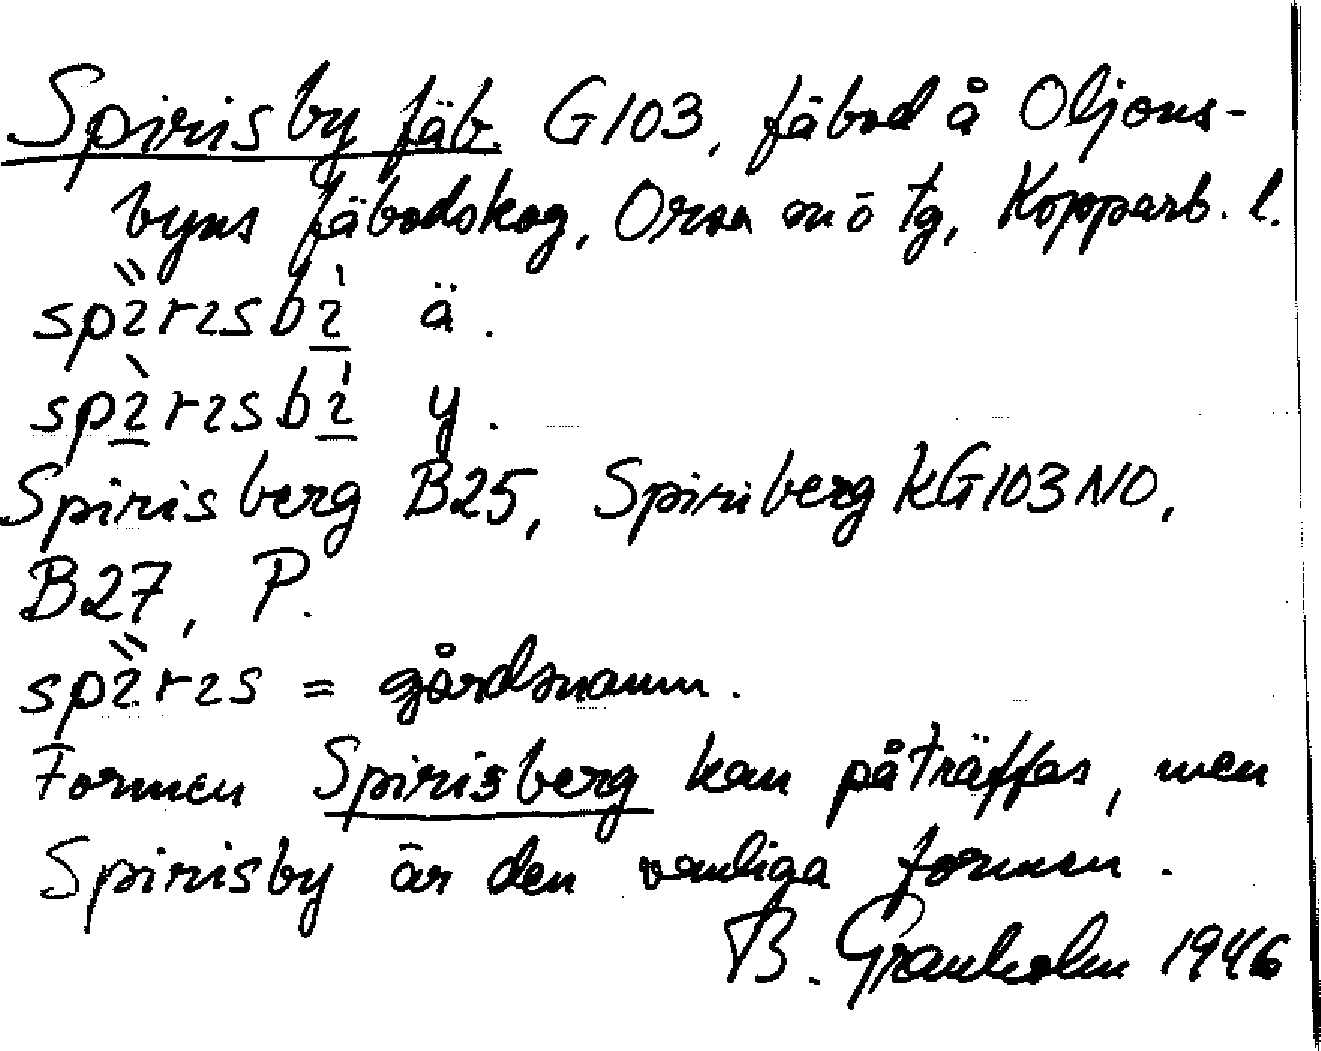 Spirisby fäb. G103, fäbod å Oljons-
byns fäbodskog, Orsa snö tg, Kopparb. l.
spı̋rısbı̀ ä.
spı̀rısbı̀ y.
Spirisberg B25, Spiriberg kG103NO,
B27, P.
spı̋rıs = gårdsnamn.
Formen Spirisberg kan påträffas, men
Spirisby är den vanliga formen.
B. Granholm 1946